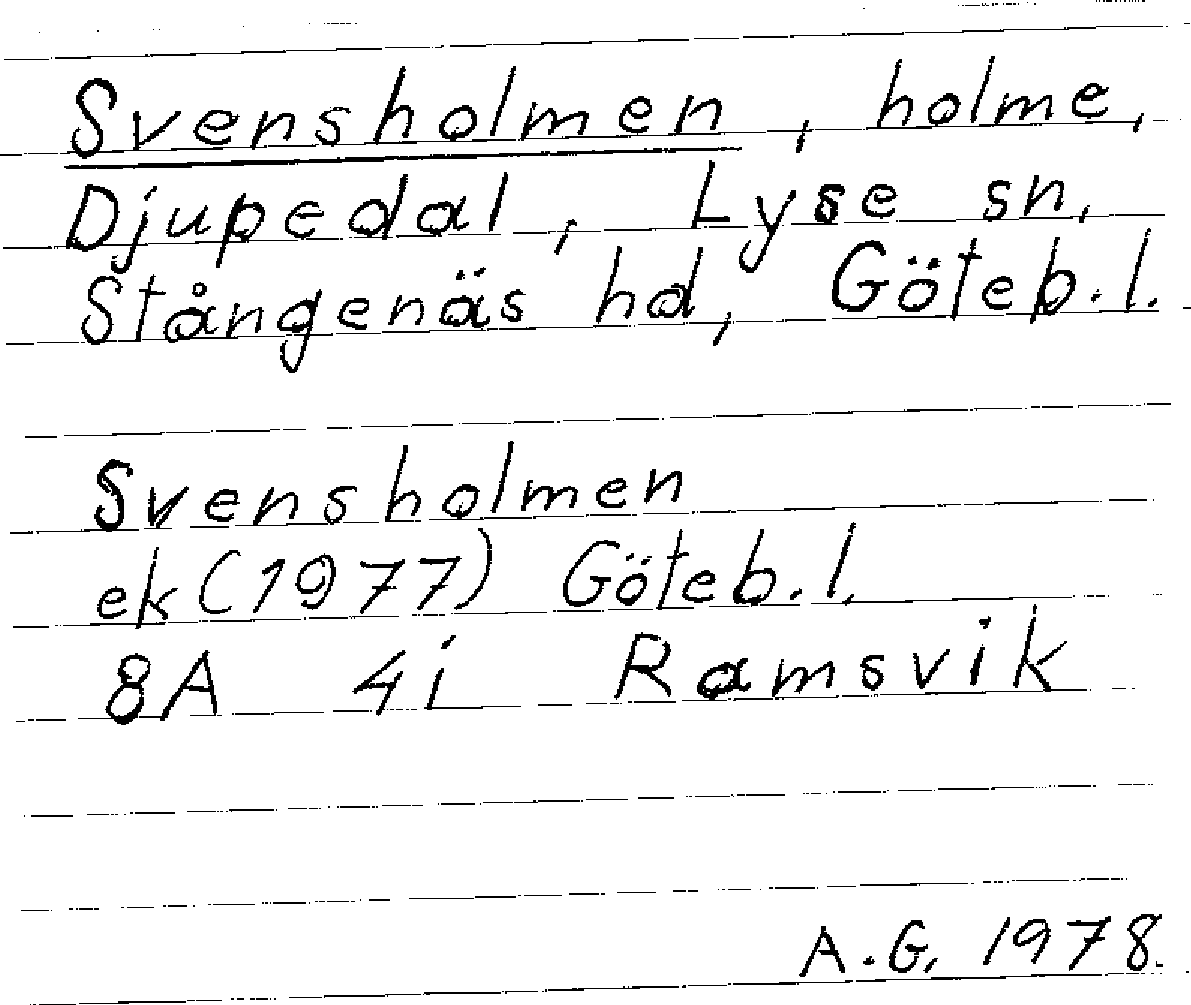 Svensholmen, holme,
Djupedal, Lyse sn,
Stångenäs hd, Göteb.l.
Svensholmen
ek(1977) Göteb.l.
8A 4i Ramsvik
A.G. 1978.